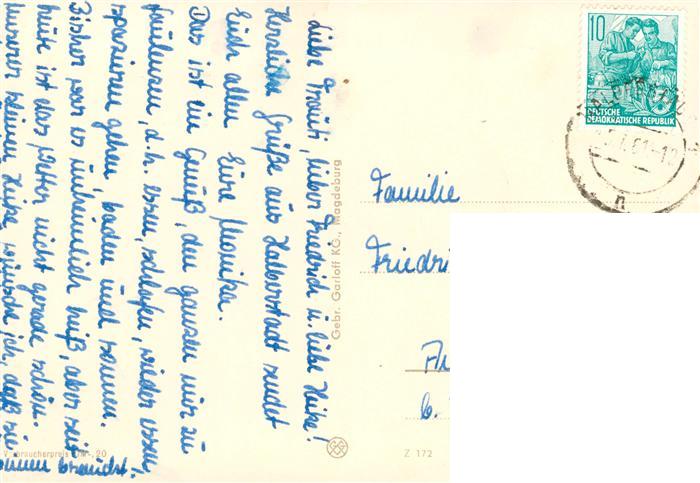 Liebe Trauti, lieber Friedrich u. liebe Heike!
Herzliche Grüße aus Halberstadt sendet
Euch allen Eure Monika.
Das ist ein Genuß, den ganzen nur zu
faulenzen, d.h. essen, schlafen, wieder essen
spazieren gehen, baden und sonnen.
Bisher war es unheimlich heiß, aber seit
heute ist das Wetter nicht gerade schön.
unserer kleinen Heike wünsche ich, daß sie
braucht.
Gebr. Garloff KG., Magdeburg
10
DEUTSCHE
DEMOKRATISCHE REPUBLIK
Familie
Friedri
Z 172